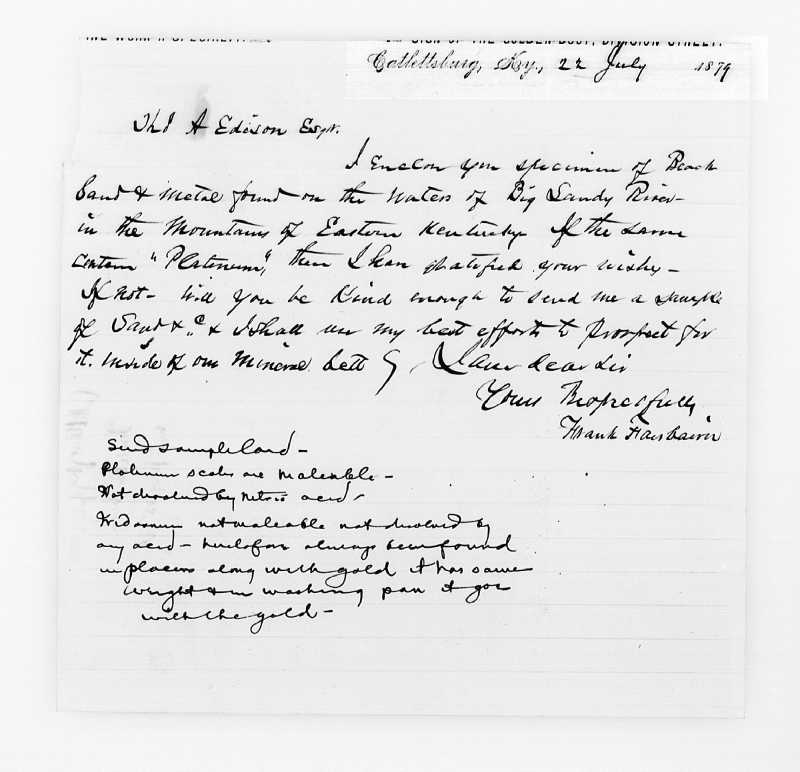 SIGN OF THE GOLDEN BOOT, DIVISION STREET.
Catlettsburg, Ky., 22 July 1879
Thos A Edison Esqr.
I Enclose you specimen of Black
Sand & metal found on the waters of Big Sandy River-
in the Mountains of Eastern Kentucky If the same
contain "Platinum", then I have gratified your wishes -
If not - will you be Kind enough to send me a sample
of Sand &c & I shall use my best efforts to prospect for
it. inside of our Mineral belt
I am dear Sir
Yours Respectfully
Frank Fairbairn
Send sample Card -
Platinum scales are maleable -
Not dissolved by nitric acid -
Iridosmium not maleable not dissolved by
any acid - heretofore always been found
in placers along with gold it has same
weight & in washing pan it goes
with the gold -